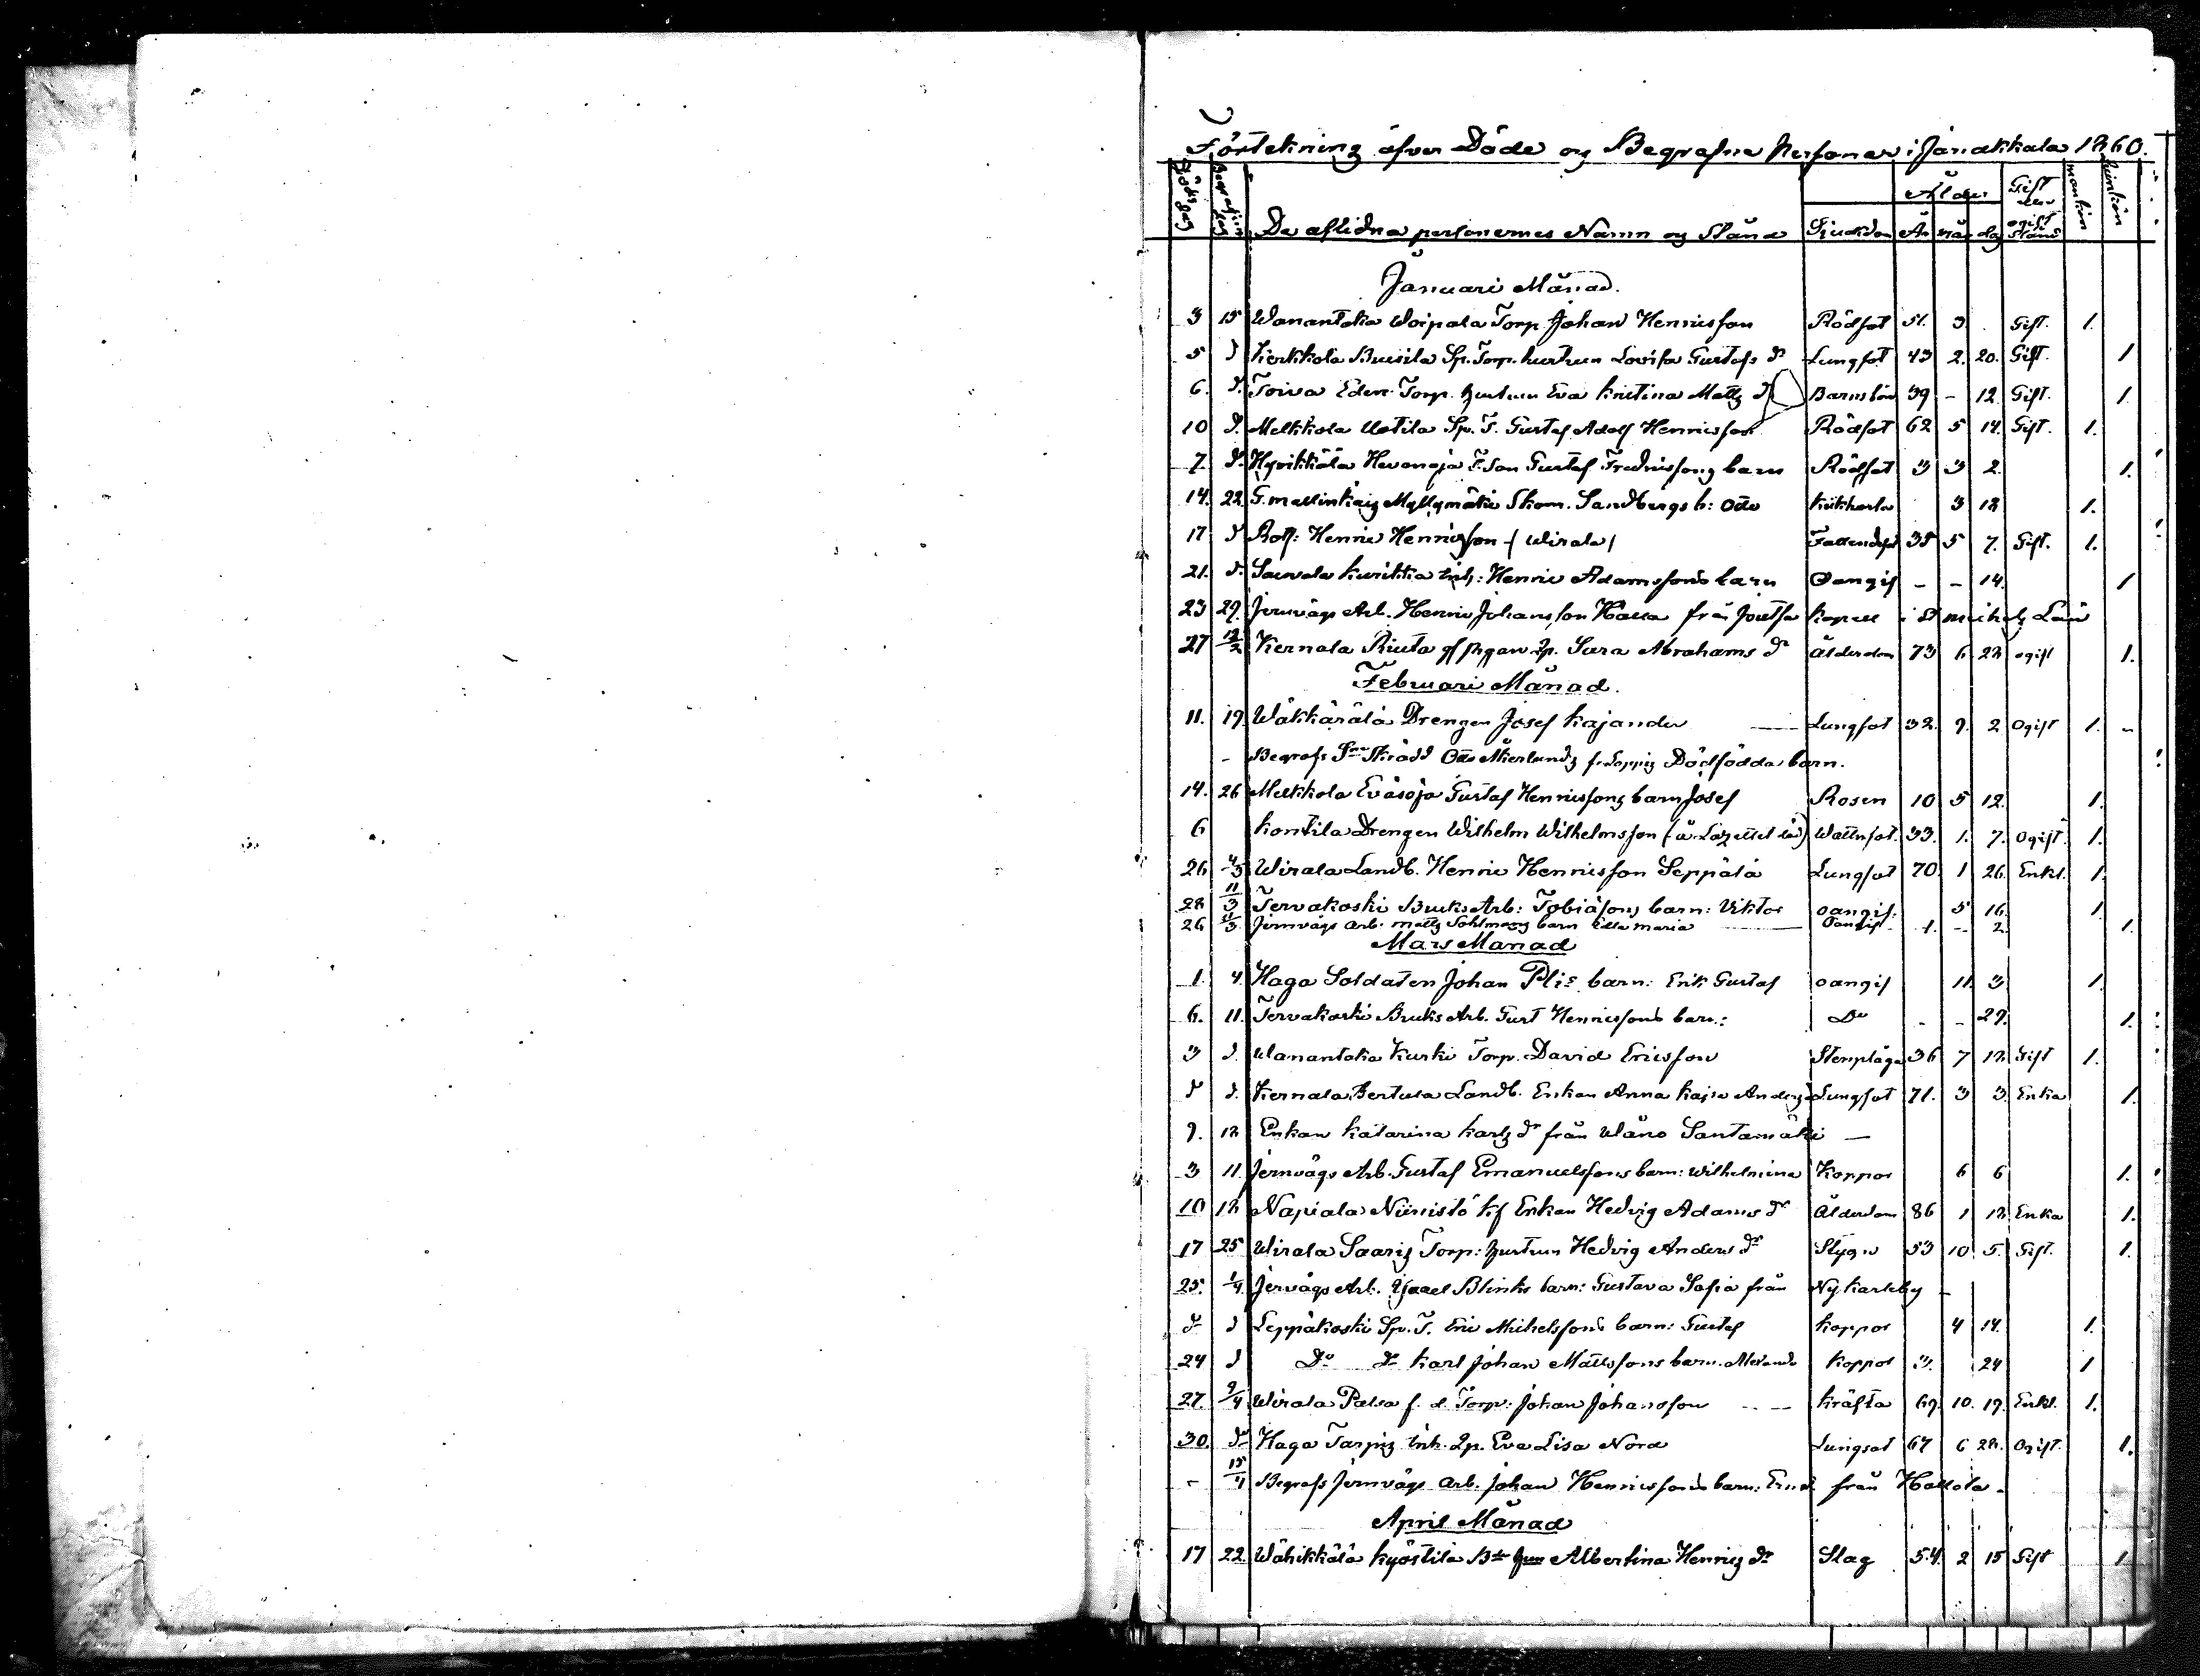 Förtekning öfver Döde og Begrafne Personer i Janakkala 1860.
Döds dag Begrafn. dag De aflidna personernes Namn og Stånd Sjukdom Ålder År mån dag Gift eller ogift Stånd mankön qvinkön
Januari Månad.
3 15 Wanantaka Woipala Torp Johan Henricsson Rödsot 51. 3. Gift. 1.
5 d Kerkkola Sp. Torp. hustrun Lovisa Gustafs dr Lungsot 43 2. 20. Gift. 1
6. d. Toiva Eden Torp. hustrun Eva Kristina Matts dr Barnsbörd 39 - 12. Gift. 1.
10 d. Melkkola Uotila Sp. T. Gustaf Adolf Henricsson Rödsot 62 5 14. Gift. 1.
7. d. Hyvikkälä Hevonoja T. Son Gustaf Fredricssons barn Rödsot 3 3 2. 1.
14. 22. Myllymäki Skom. Sandbergs b: Otto Kikhosta 3 18 1.
17 d Rotf: Henric Henricsson (Wirala) Fallandesot 35 5 7. Gift. 1.
21. d. Kurikka inh: Henric Adamssons barn Oangif - - 14. 1
23 29. Jernvägs Arb. Henric Johansson från Joutsa Kapell i St michels Län
27 12/2 Kernala Riuta Sara Abrahams dr ålderdom 73 6 28 ogift 1.
Februari Månad.
11. 19. Wäkkärälä Drengen Josef Kajander Lungsot 32. 9. 2 Ogift 1. -
- Begrofs Otto f. Loppis Dödfödda barn.
14. 26 Melkkola Evästöja Gustaf Henricssons barn Josef Rosen 10 5 12. 1.
6 Kontila Drengen Wilhelm Wilhelmsson Wattusot. 33. 1. 7. Ogift. 1.
26 4/3 Wirala Landb. Henric Henricsson Seppälä Lungsot 70. 1 26. Enkl. 1.
28 11/3 Tervakoski Bruks Arb: Tobiassons barn: Viktor oangif. 5 16. 1.
26 Jernvägs arb. Matts barn maria Oangif. 1. - 2. 1.
Mars Månad
1. 4. Haga Soldaten Johan barn: Erik Gustaf oangif 11. 3 1.
6. 11. Tervakoski Bruks Arb. Gust Henricssons barn: Do - - 29. 1.
3 d. Wanantaka Kurki Torp. David Ericsson Stenplåga 36 7 12. Gift 1.
d d. Kernala Bertula Landb. Enkan Anna Kajsa Anders Lungsot 71. 3 3. Enka 1.
9. 18 Enkan Katarina Karls dr från Wäno Santamäki —
3 11. Jernvägs Arb. Gustaf Emanuelssons barn: Wilhelmina Koppor 6 6 1.
10 18 Napiala Niinistö Enkan Hedvig Adams dr Ålderdom 86 1 12. Enka 1.
17 25 Wirala Saaris Torp: hustrun Hedvig Anders dr Slag 53 10 5. Gift. 1.
25. 1/4 Jervägs Arb. barn: Gustava Sofia från Nykarleby -
d d Leppäkoski Sp. T. Eric Mickelssons barn: Gustaf Koppor 4 14. 1.
24 d Do do Karl Johan Mattssons barn: Koppor 3. 24 1
27. 9/4 Wirala Palsa f. d Torp: Johan Johansson Kräfta 69. 10. 19. Enkl. 1.
30. d Haga inh. Eva Lisa Nord Lungsot 67 6 28. Ogift. 1.
- 15/4 Begrofs Jernvägs arb. Johan Henricssons barn: från Hollola -
April Månad
17 22 Wähikkälä Kyöstilä Albertina Henrics dr Slag 54. 2 15 Gift 1